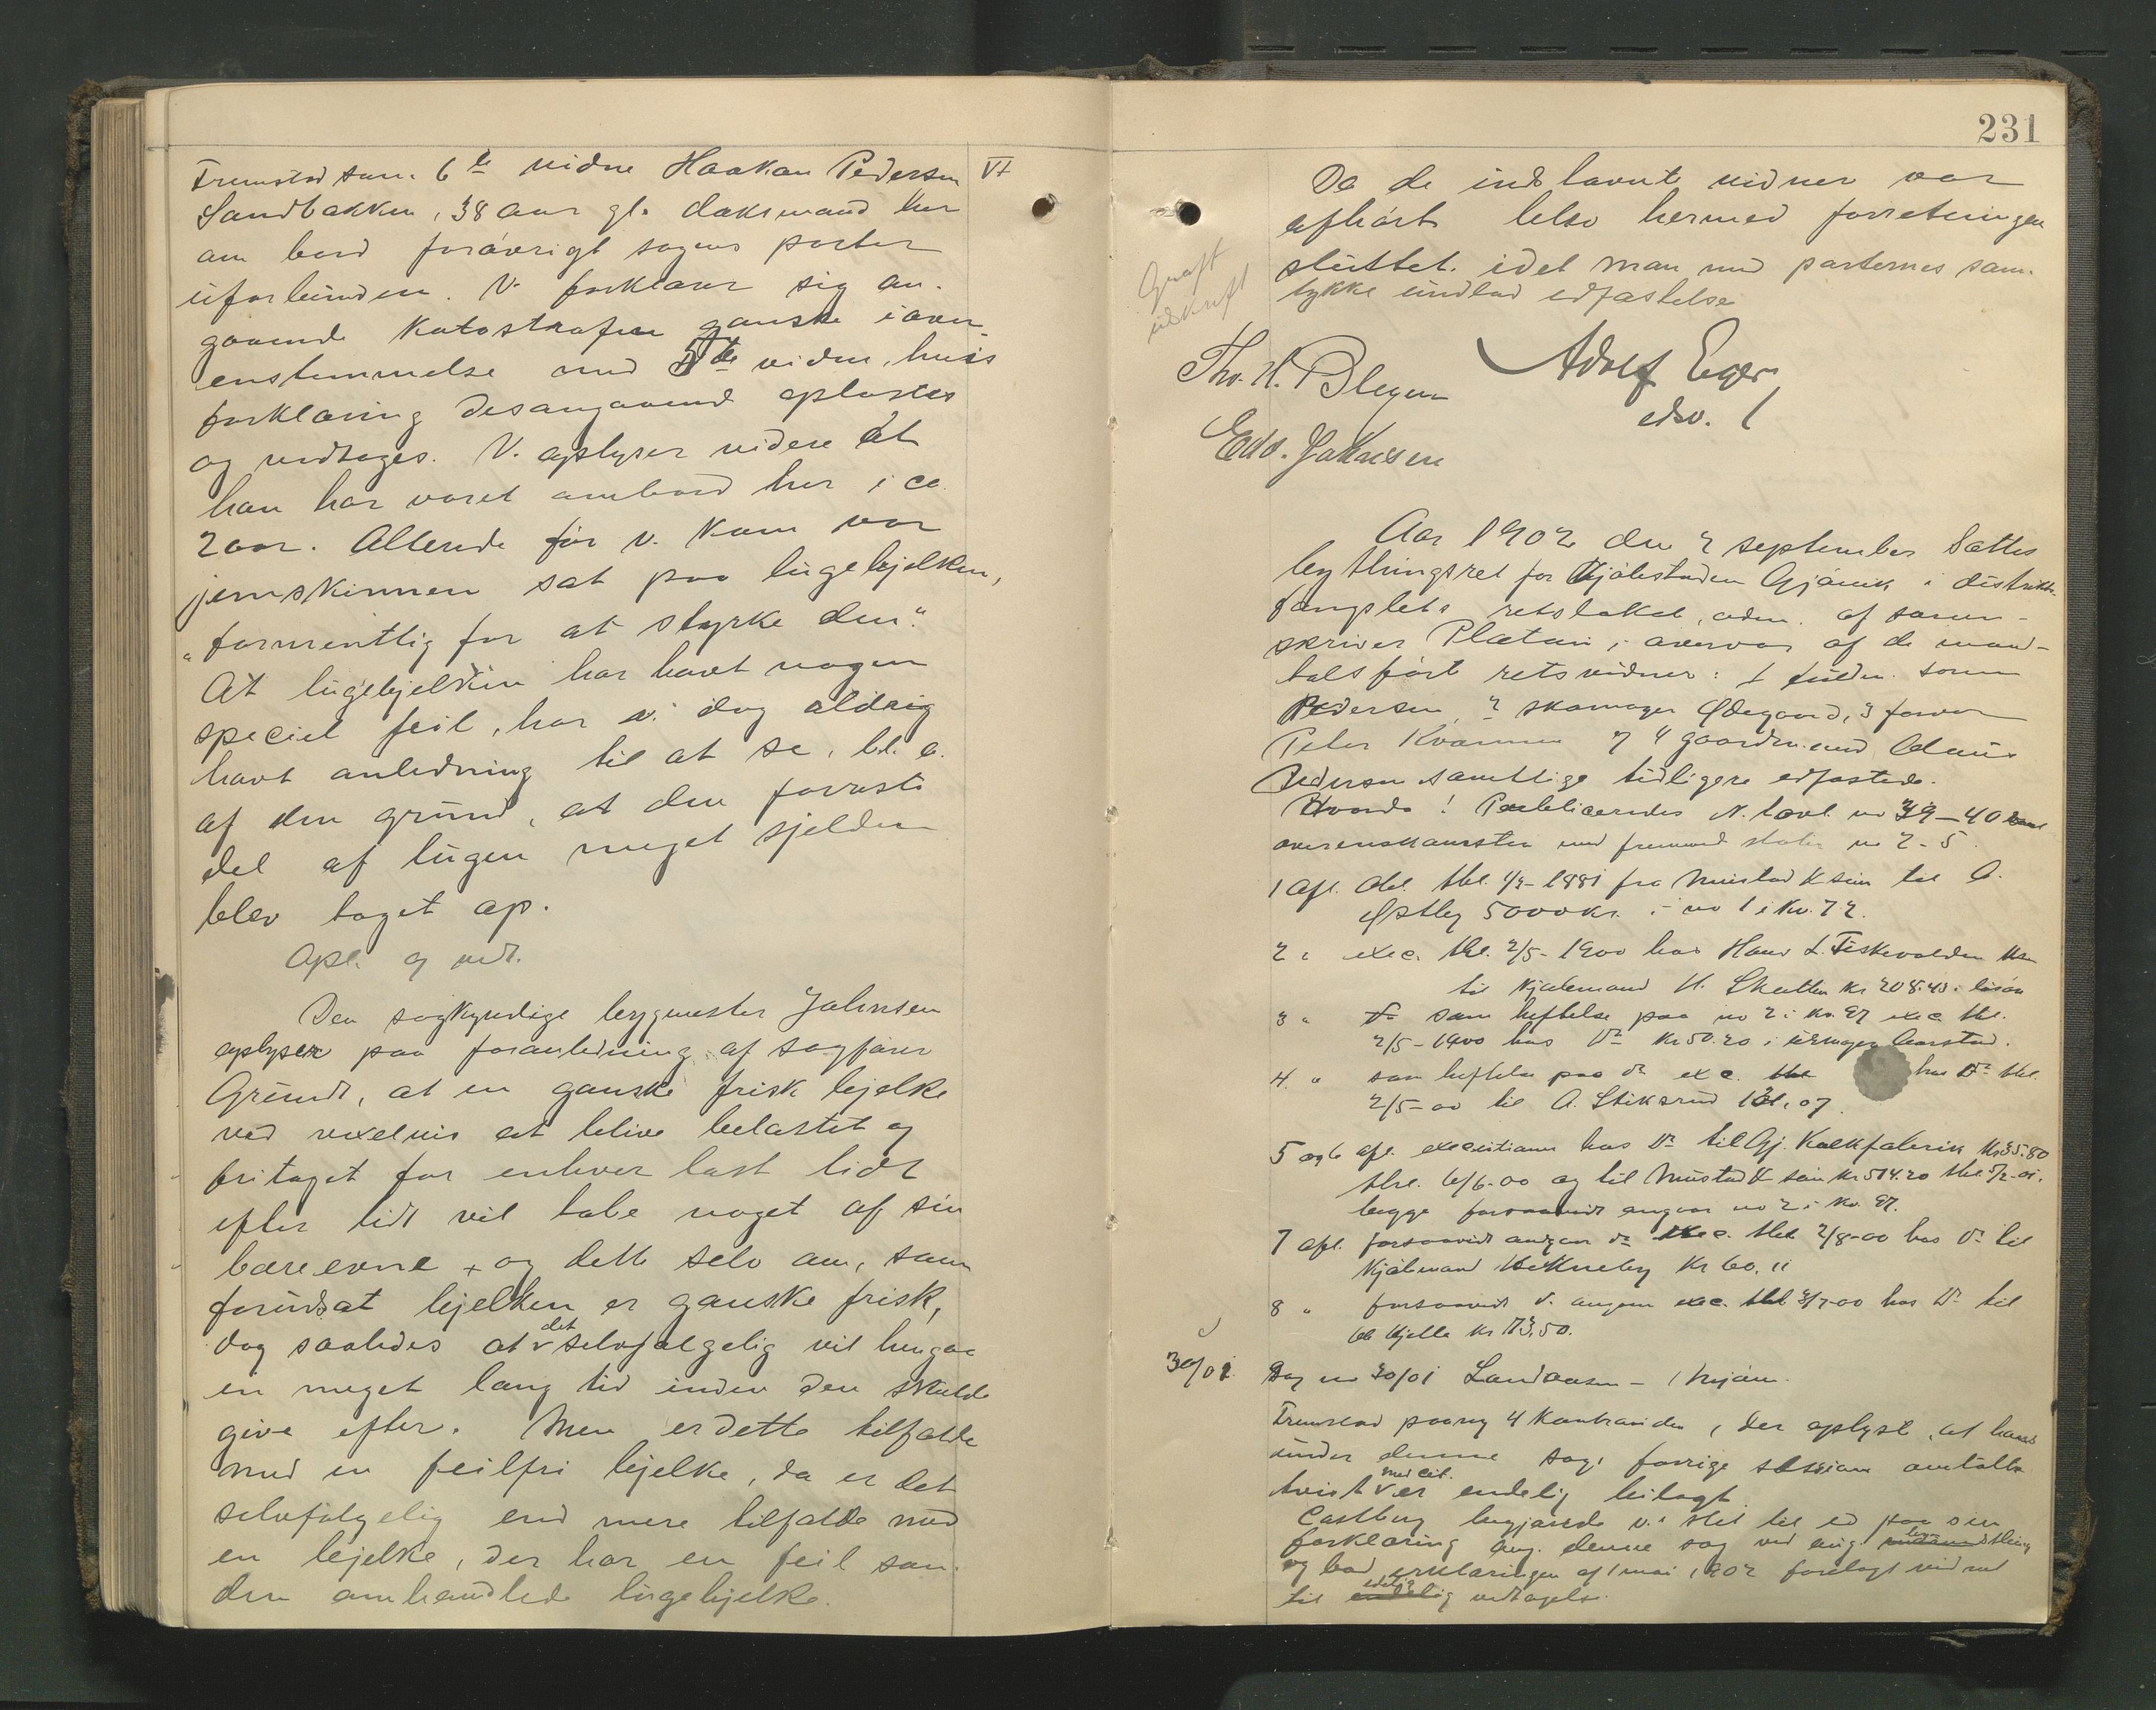 Fremstod som 6te vidne Haakon Pedersen VI
Sandbakken, 38 aar gl. dæksmand her
om bord forøvrigt sagens parter
uforbunden. V. forklarer sig an-
gaaende katastrofen ganske i over-
enstemmelse med 5te vidne, hvis
forklaring desangaaende oplæstes
og vedtoges. V. oplyser videre at
han har været ombord her i ca
2 aar. Allerede før v. kom var
jernskinnen sat paa lugebjelken,
"formentlig for at styrke den."
At lugebjelken har havt nogen
speciel feil, har v. dog aldrig
havt anledning til at se, bl. a.
af den grund, at den forreste
del af lugen meget sjelden
blev taget op.
Opl. og vedt.
Den sagkyndige bygmester Johnsen
oplyser paa foranledning af sagfører
Grundt, at en ganske frisk bjelke
ved vexelvis at blive belastet og
fritaget for enhver last tidt
efter tidt vil tabe noget af sin
bæreevne + og dette selv om, som
forudsat bjelken er ganske frisk,
dog saaledes at det selvfølgelig vil hengaa
en meget lang tid inden den skulde
give efter. Men er dette tilfælde
med en feilfri bjelke, da er det
selvfølgelig end mere tilfælde med
en bjelke, der har en feil som
den omhandlede lugebjelke.
231
Da de indstævnte vidner var
afhørt blev hermed forretningen
sluttet. idet man med parternes sam-
tykke undlod edfæstelse
udskrift
Tho. H. Blegen Adolf Eger
edsv.
Edv. Johnsen
Aar 1902 den 2 september sattes
bythingsret for Kjøbstaden Gjøvik i distrikts-
fængslets retslokal, adm. af soren-
skriver Platou i overvær af de mand-
talsført retsvidner: 1 fuldm.
Pedersen, 2 skomager Ødegaard, 3 farver
Peter Kvarme 7 4 gaardmand Olaus
Pedersen samtlige tidligere edfæstede.
Hvorda! Publiceredes N. lovt. no 39-40
overenskomster med fremmed stater no 2-5.
1 Afl. Obl. thl. 1/9-1881 fra Mustad & søn til O.
Østby 5000 kr. i no 1 i Kv. 72.
2 " exec. thl. 2/5-1900 hos Hans L. Fiskevolden
til Kjøbmand H. Skatten kr 208.40.
3 " som heftelse paa no 2 i kv. 97 exec thl.
2/5-1900 hos Do kr 50.20 i urmager Aarstad.
4. " som heftelse paa do exc. hos Do thl.
2/5-00 til A. Stiksrud
5 og 6 afl. executioner hos Do til Gj. Kalkfabrik kr 35.80
thl. 6/6-00 og til Mustad & søn kr 514.20 thl. 5/2-01.
begge forsaavidt angaar no 2 i kv. 97.
7 afl. forsaavidt angaar do exec. thl. 2/8-00 hos Do til
Kjøbmand Hekneby kr 60.11
8 " forsaavidt angaar exec. thl 3/7-00 hos Do til
Kjelle kr 73.50.
30/01. Sag no 30/01 Landaasen - Mjøen.
Fremstod paany 4 Kontrasiden, der oplyst, at hans
under denne sag i forrige session omtalte
tvist med Cit. er endelig bilagt.
Castberg begjærede v. stedt til ed paa sin
forklaring ang. denne sag ved aug. bything
og bad erklæringen af 1 mai 1902 forelagt vidnet
til edelig vedtagelse.